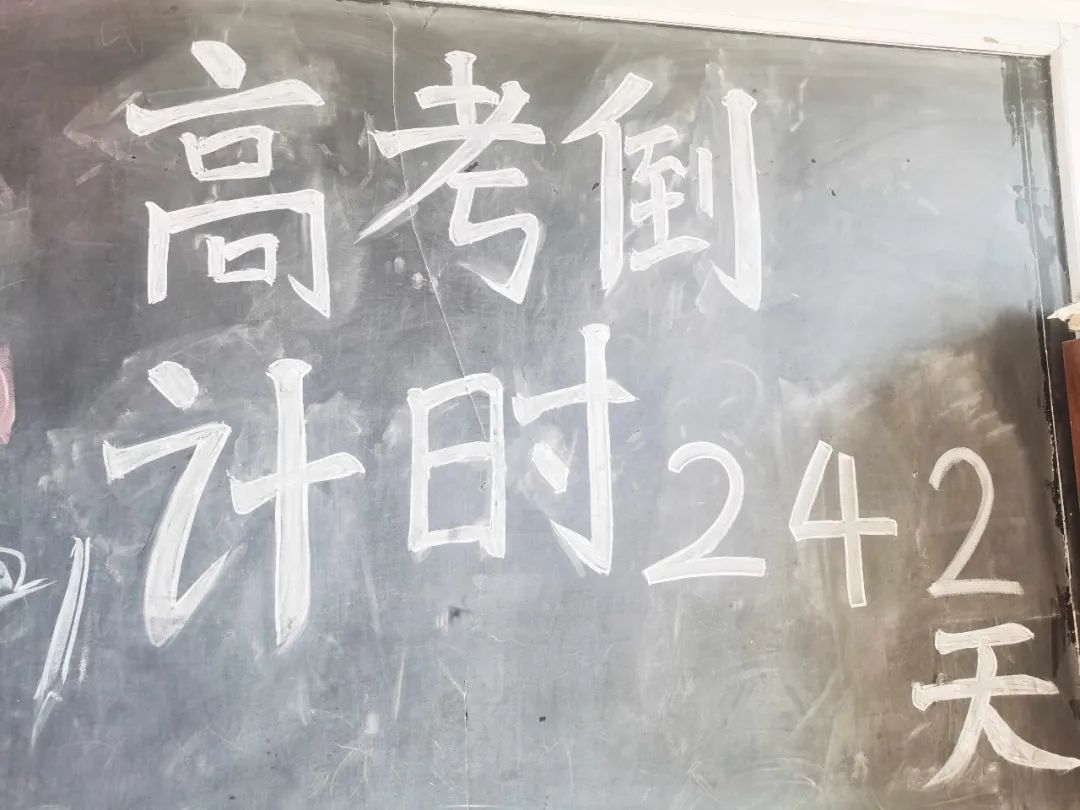 高考倒
计时242
天